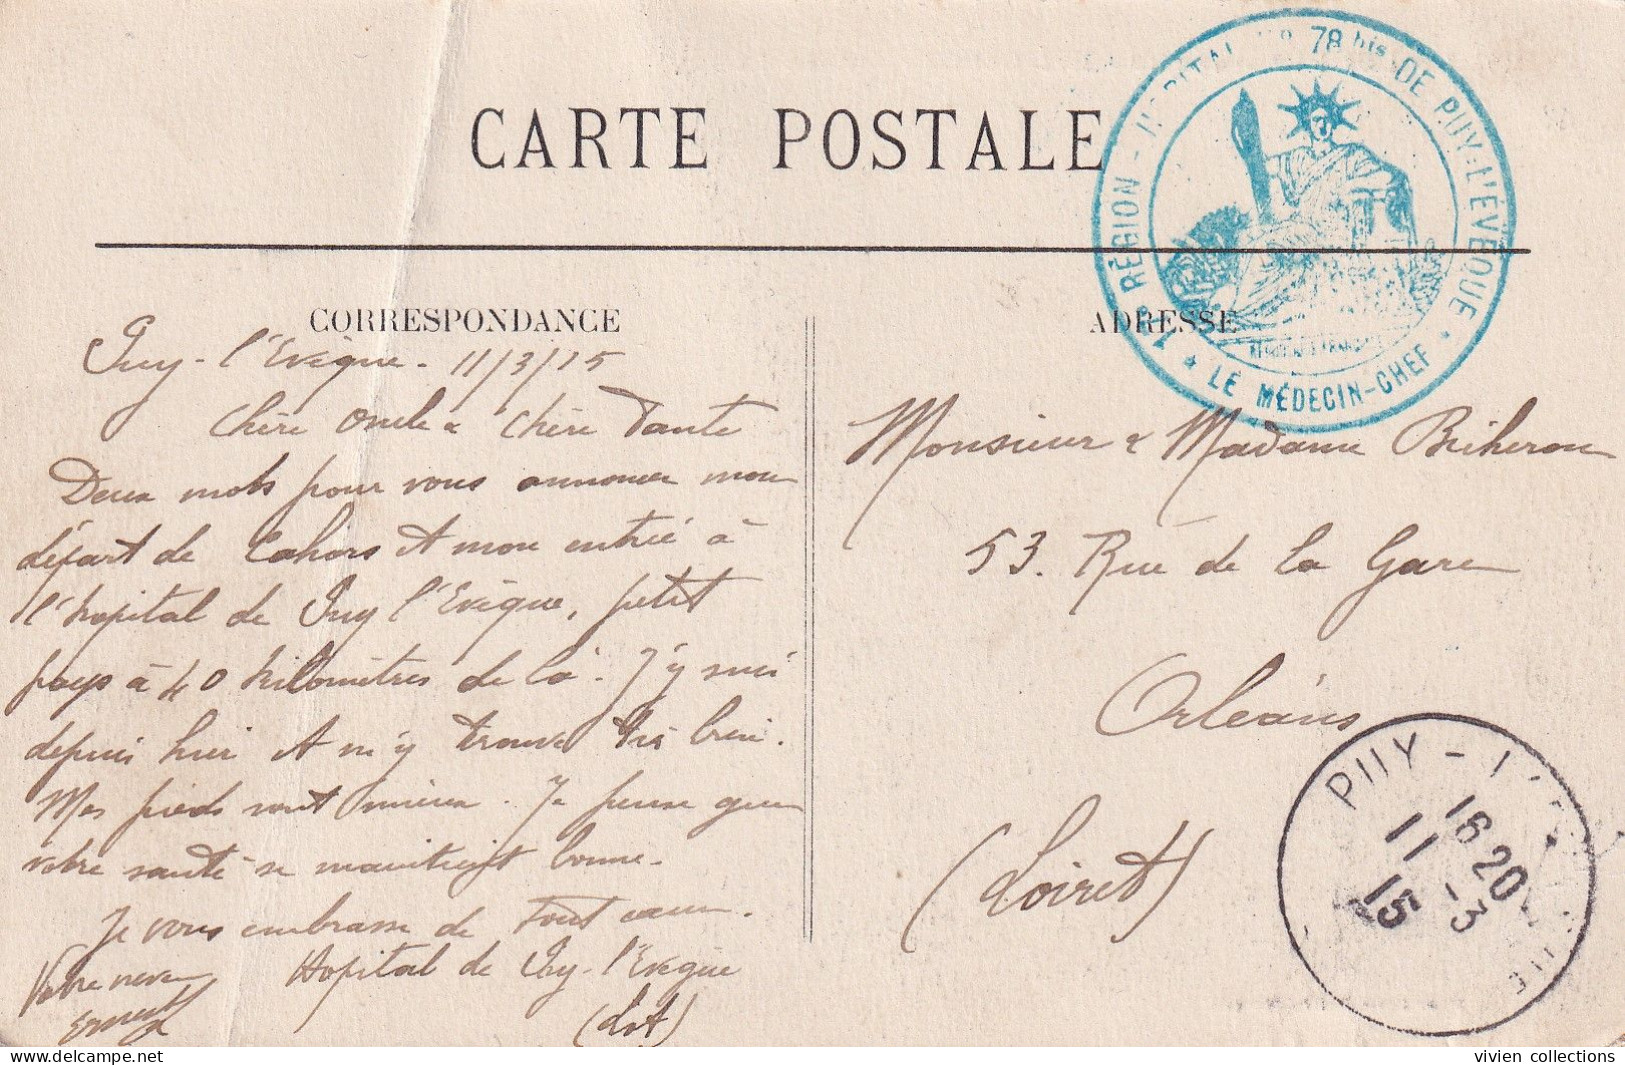 CARTE POSTALE
17e RÉGION - HOPITAL No 78 bis DE PUY-L'ÉVÊQUE
* LE MÉDECIN-CHEF *
CORRESPONDANCE
Puy-l'Evêque. 11/3/15
Chère Oncle & Chère Tante
Deux mots pour vous annoncer mon
départ de Cahors et mon entrée à
l'hopital de Puy l'Evêque, petit
pays à 40 kilomètres de là. J'y suis
depuis hier et m'y trouve très bien.
Mes pieds vont mieux. Je pense que
votre santé se maintient bonne.
Je vous embrasse de tout cœur.
Votre neveu
Ernest
Hopital de Puy-l'Evêque
(Lot)
ADRESSE
Monsieur & Madame Biheron
53. Rue de la Gare
Orléans
(Loiret)
PUY-L'EVEQUE
16 20
11 -3
15
vivien collections